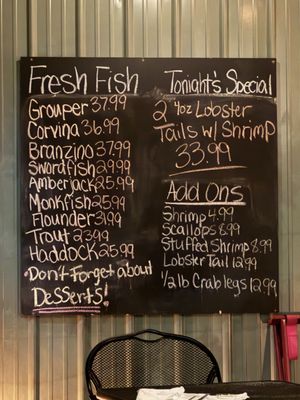 Fresh Fish
Grouper 37.99
Corvina 36.99
Branzino 37.99
Swordfish 29.99
Amberjack 25.99
Monkfish 25.99
Flounder 31.99
Trout 23.99
Haddock 25.99
Don't Forget about
Desserts!
Tonight's Special
2 4oz Lobster
Tails w/ Shrimp
33.99
Add Ons
Shrimp 4.99
Scallops 8.99
Stuffed Shrimp 8.99
Lobster Tail 12.99
1/2 lb Crab legs 12.99